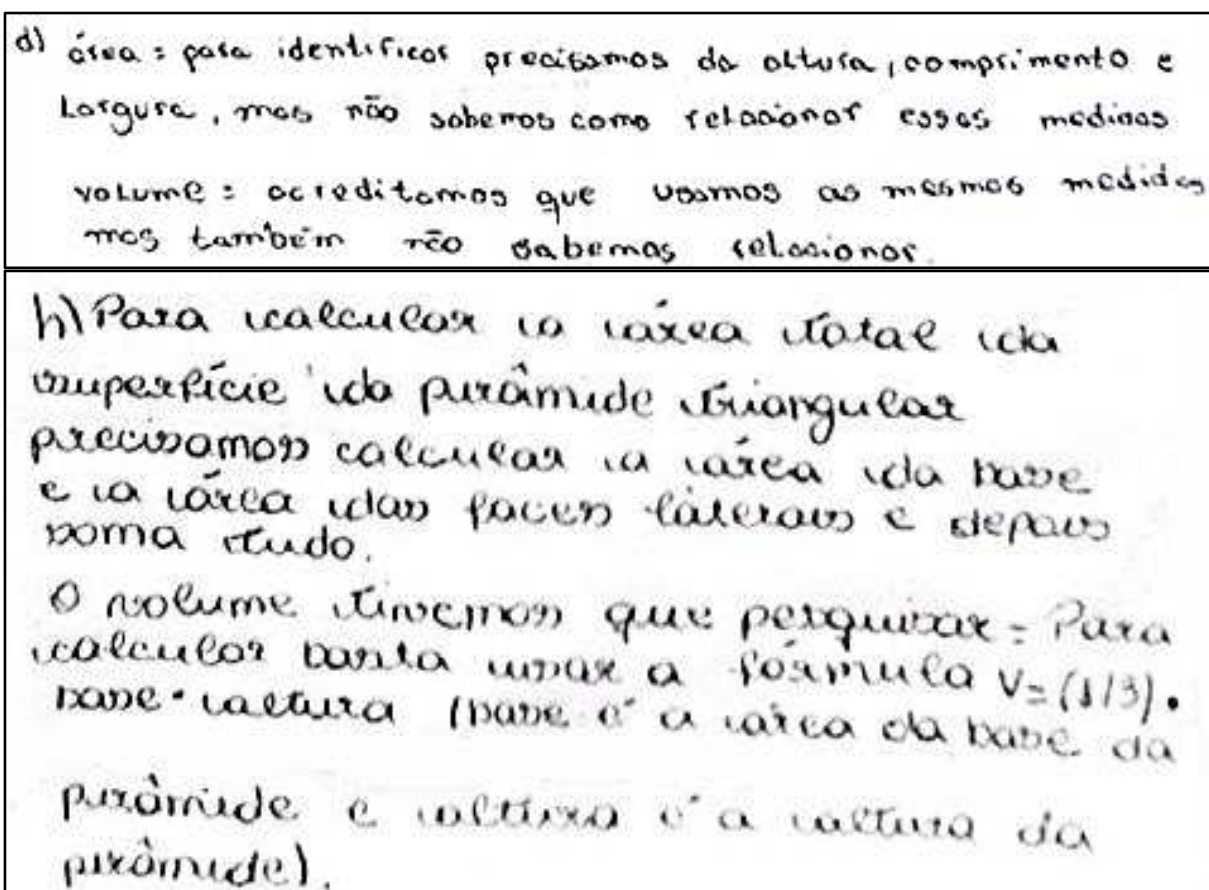 d) área = para identificar precisamos da altura, comprimento e
Largura, mas não sabemos como relacionar essas medidas
volume = acreditamos que usamos as mesmas medidas
mas também não sabemos relacionar.
h) Para calcular a área total da
superfície da pirâmide triangular
precisamos calcular a área da base
e a área das faces laterais e depois
soma tudo.
O volume tivemos que pesquisar = Para
calcular basta usar a fórmula V=(1/3).
base • altura (base é a área da base da
pirâmide e altura é a altura da
pirâmide).